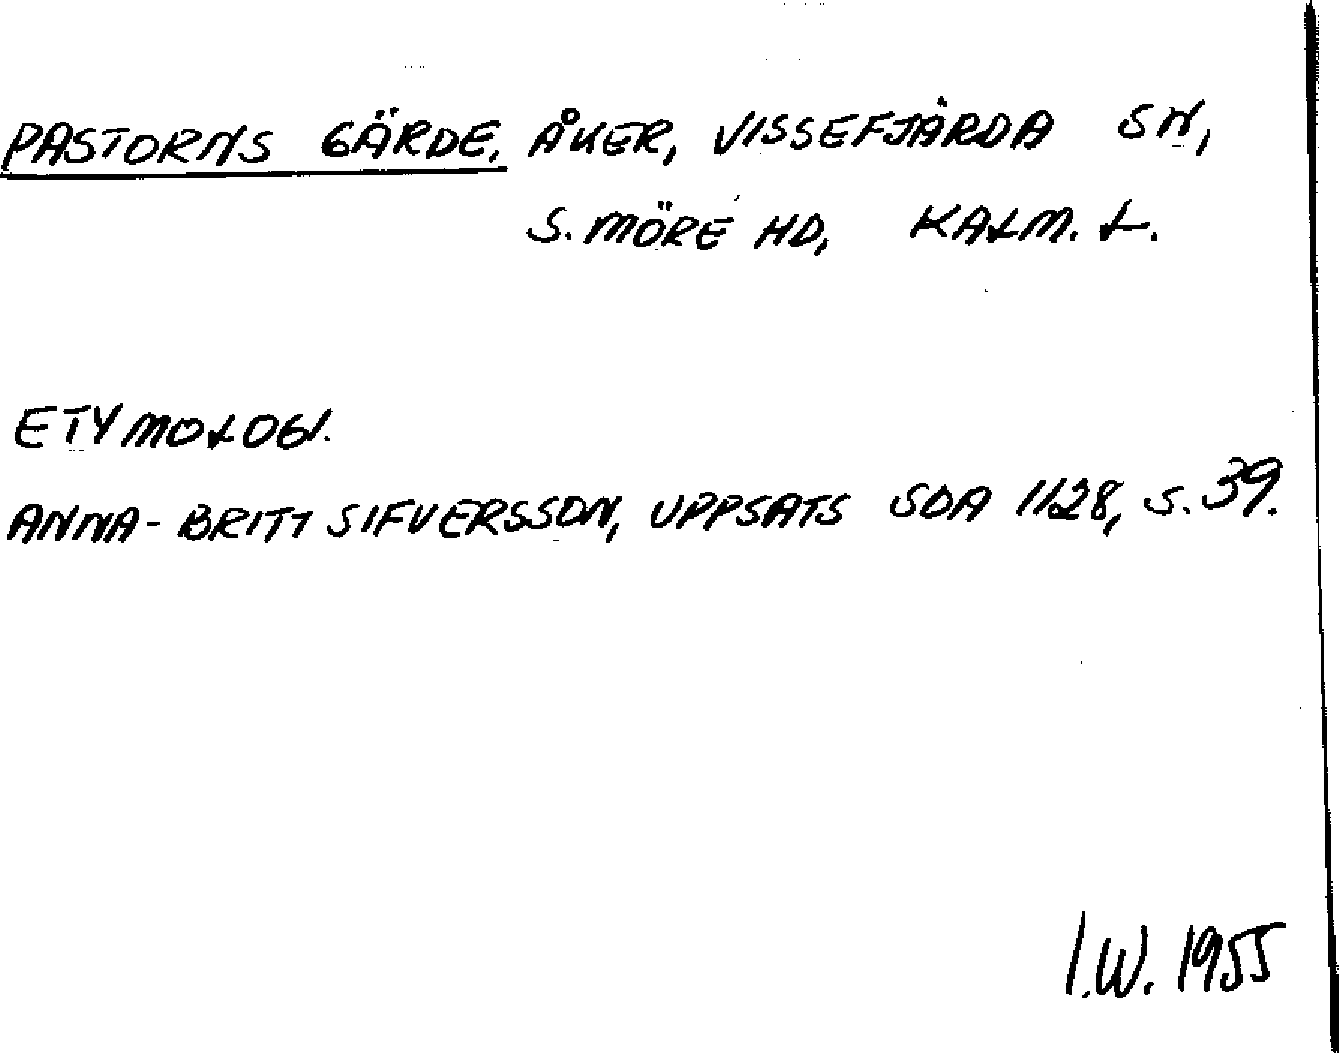 PASTORNS GÄRDE, ÅKER, VISSEFJÄRDA SN,
S. MÖRE HD, KALM. L.
ETYMOLOGI.
ANNA-BRITT SIFVERSSON, UPPSATS SOA 1128, S. 39.
I.W. 1955